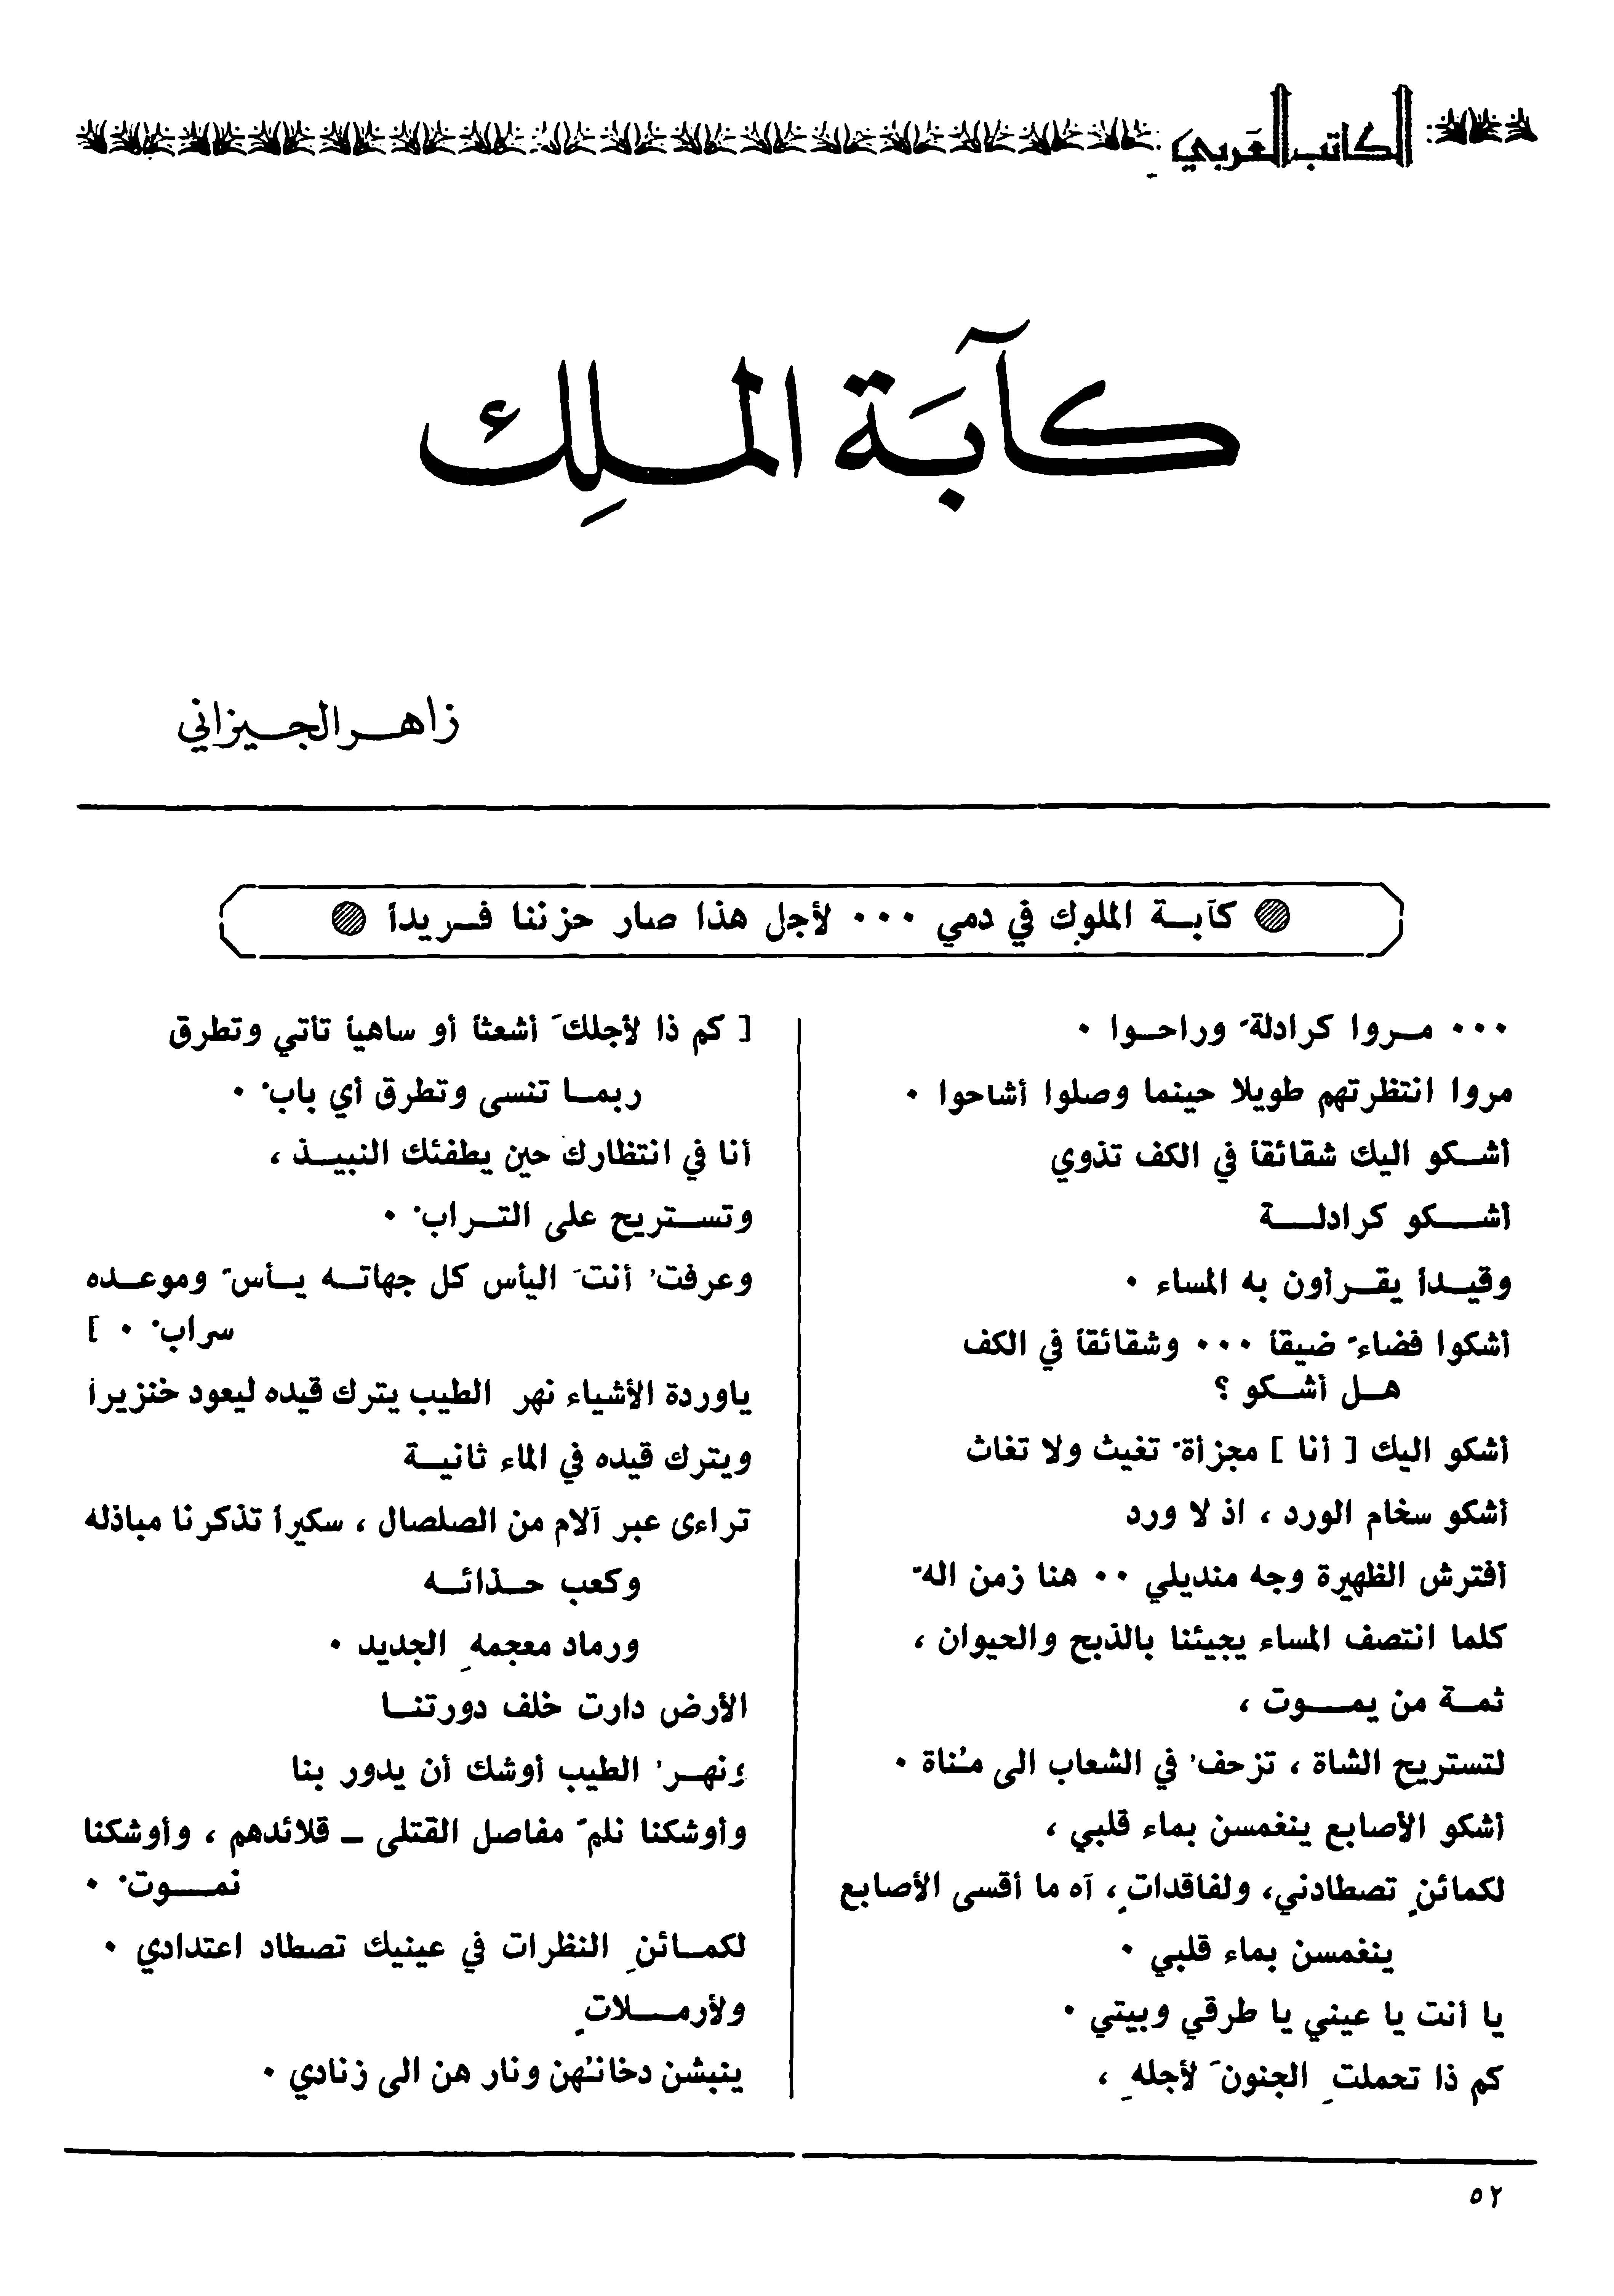 الكاتب العَربي
كآبَة الملِك
زاهر الجيزاني
كآبة الملوك في دمي ٠٠٠ لأجل هذا صار حزننا فريداً
٠٠٠ مروا كرادلةً وراحوا ٠
مروا انتظرتهم طويلا حينما وصلوا أشاحوا ٠
أشكو اليك شقائقاً في الكف تذوي
أشكو كرادلة
وقيداً يقرأون به المساء ٠
أشكوا فضاءً ضيقاً ٠٠٠ وشقائقاً في الكف
هل أشكو ؟
أشكو اليك [ أنا ] مجزأةً تغيث ولا تغاث
أشكو سخام الورد ، اذ لا ورد
أفترش الظهيرة وجه منديلي ٠٠ هنا زمن الهً
كلما انتصف المساء يجيئنا بالذبح والحيوان ،
ثمة من يموت ،
لتستريح الشاة ، تزحفُ في الشعاب الى مُناة ٠
أشكو الأصابع ينغمسن بماء قلبي ،
لكمائنٍ تصطادني، ولفاقداتٍ ، آه ما أقسى الأصابع
ينغمسن بماء قلبي ٠
يا أنت يا عيني يا طرقي وبيتي ٠
كم ذا تحملتِ الجنونَ لأجلهِ ،
[ كم ذا لأجلكَ أشعثاً أو ساهياً تأتي وتطرق
ربما تنسى وتطرق أي بابْ ٠
أنا في انتظارك حين يطفئك النبيذ ،
وتستريح على الترابْ ٠
وعرفتُ أنتَ اليأس كل جهاته يأسٌ وموعده
سرابْ ٠ ]
ياوردة الأشياء نهر الطيب يترك قيده ليعود خنزيراً
ويترك قيده في الماء ثانية
تراءى عبر آلام من الصلصال ، سكيراً تذكرنا مباذله
وكعب حذائه
ورماد معجمهِ الجديد ٠
الأرض دارت خلف دورتنا
ونهرُ الطيب أوشك أن يدور بنا
وأوشكنا نلمّ مفاصل القتلى ــ قلائدهم ، وأوشكنا
نموتْ ٠
لكمائنِ النظرات في عينيك تصطاد اعتدادي ٠
ولأرملاتٍ
ينبشن دخانهن ونار هن الى زنادي ٠
٥٢